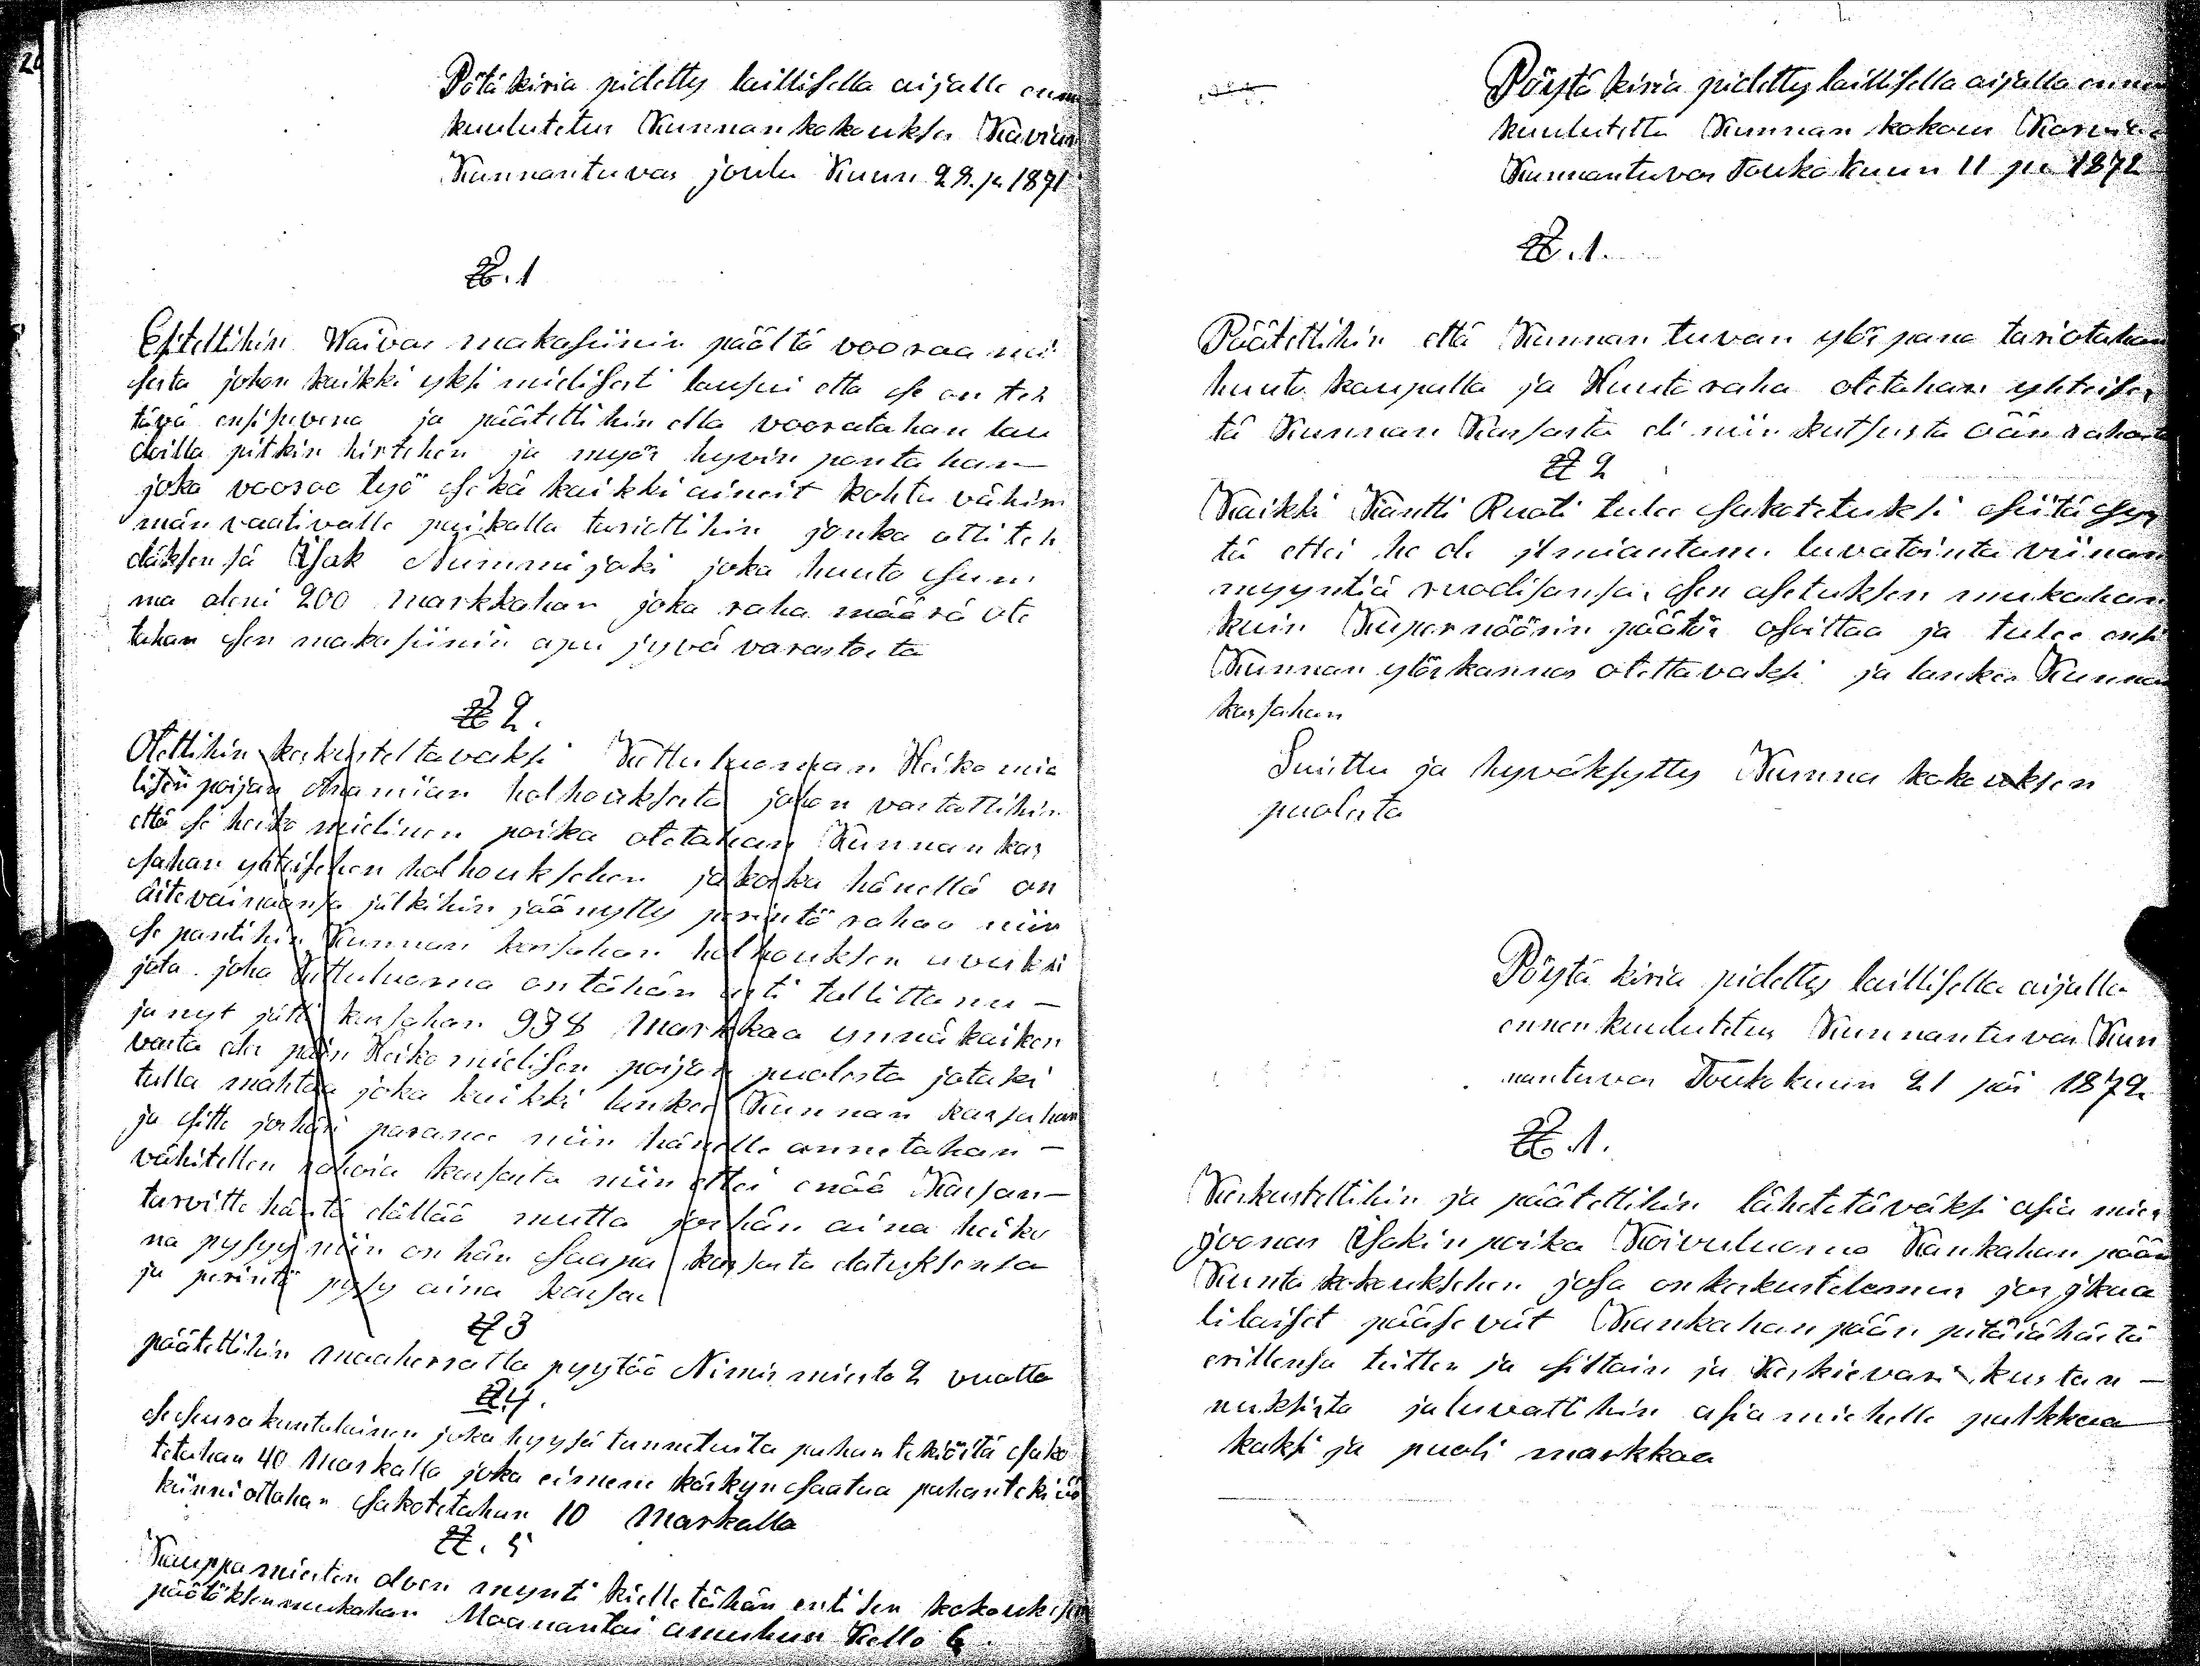 Pötäkiria pidetty laillisella aijalla ennen
kuulutetus Kunnankokoukses Karvian
Kunnantuvas joulu Kuun 28. p 1871
§. 1
Esiteltihin Waivas makasiinin päältä vooraami
sesta johon kaikki yksimielisesti lausui että se on teh
tävä ensisuvena ja päätettihin että vooratahan lau
doilla pitkin hirtehen ja myös hyvin pantahan
joka vooraa työ sekä kaikki aineit kohta vähim
män vaativalle paikalla tariottihin jonka otti teh
däksensä Isak Nummijoki joka huuto sum
ma aleni 200 markkahan joka raha määrä ote
tahan sen makasiinin apu jyvä varastosta
§ 2.
Otettihin keskusteltavaksi Kuttuluoman Heikomie
lisen pojan holhouksesta johon vastattihin
että se heikomielinen poika otetahan Kunnan kas
sahan yhteisehen holhouksehen ja koska hänellä on
äitevainaansa jälkihin jäänytty perintö rahaa niin
se pantihin Kunnan kassahan holhouksen avuksi
jota joha Kuttuluoma on tähän asti tallittanu –
ja nyt jätti kassahan 938 Markkaa ynnä kaiken
vasta edes päin Heikomielisen poijan puolesta jotaki
tulla mahtaa joka kaikki lankee Kunnan kassahan
ja sitte jos hän paranee niin hänelle annetahan –
vähitellen rahoia kassasta niin ettei enää Kassan –
tarvitte häntä elättää mutta jos hän aina heiko
na pysyy niin on hän saapa kassasta elatuksensa
ja perintö pysy aina kassas
§ 3
päätettihin maaherralta pyytää Nimismiestä 2 vuotta
§ 4.
se seurakuntalainen joka hyysä tunnetuita pahantekiöitä sako
tetahan 40 Markalla joka ei mene käskyn saatua pahantekiiö
kiinniottahan sakotetahan 10 Markalla
§. 5
Kauppamiesten oluen mynti kielletähän entisen kokouksen
päätöksen mukahan Maanantai aamuhun Kello 6.
Pöytäkiria pidetty laillisella aijalla ennen
kuulutettu Kunnan kokous Karvian
Kunnantuvas Toukokuun 11 p 1872
§. 1.
Päätettihin että Kunnan tuvan ylöspano tariotahan
huuto kaupalla ja Huuto raha otetahan yhteises
tä Kunnan Kassasta eli niin kutsusta äänrahasta
§ 2
Kaikki Kantti Ruoti tulee sakotetuksi siitä syys
tä ettei he ole ilmiantanu luvatointa viinan
myyntiä ruodisansa, sen asetuksen mukahan
kuin Kupernöörin päätös osoittaa ja tulee ensi
Kunnan ylöskannos otettavaksi ja lankee Kunnan
kassahan
Luittu ja hyväksytty Kunnan kokouksen
puolesta
Pöytäkiria pidetty laillisella aijalla
ennen kuulutetus Kunnantuvas Kun
nantuvas Toukokuun 21 päi 1872
§. 1.
Keskusteltihin ja päätettihin lähetetäväksi asia mies
joonas Isakin poika Koivuluoma Kankahanpään
Kunta kokouksehen josa on keskustelemus jos jkaa
lilaiset pääsevät Kankahanpään pitäjähästä
erillensä teitten ja siltain ja Keskievari kustan –
nuksista ja luvattihin asiamiehelle palkkaa
kaksi ja puoli markkaa